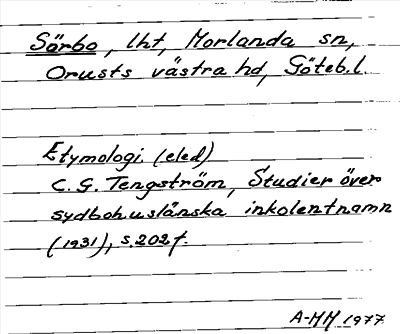 Särbo, lht, Morlanda sn,
Orusts västra hd, Göteb.l.
Etymologi (eled)
C. G. Tengström, Studier över
sydbohuslänska inkolentnamn
(1931), s.202f.
A-MM 1977